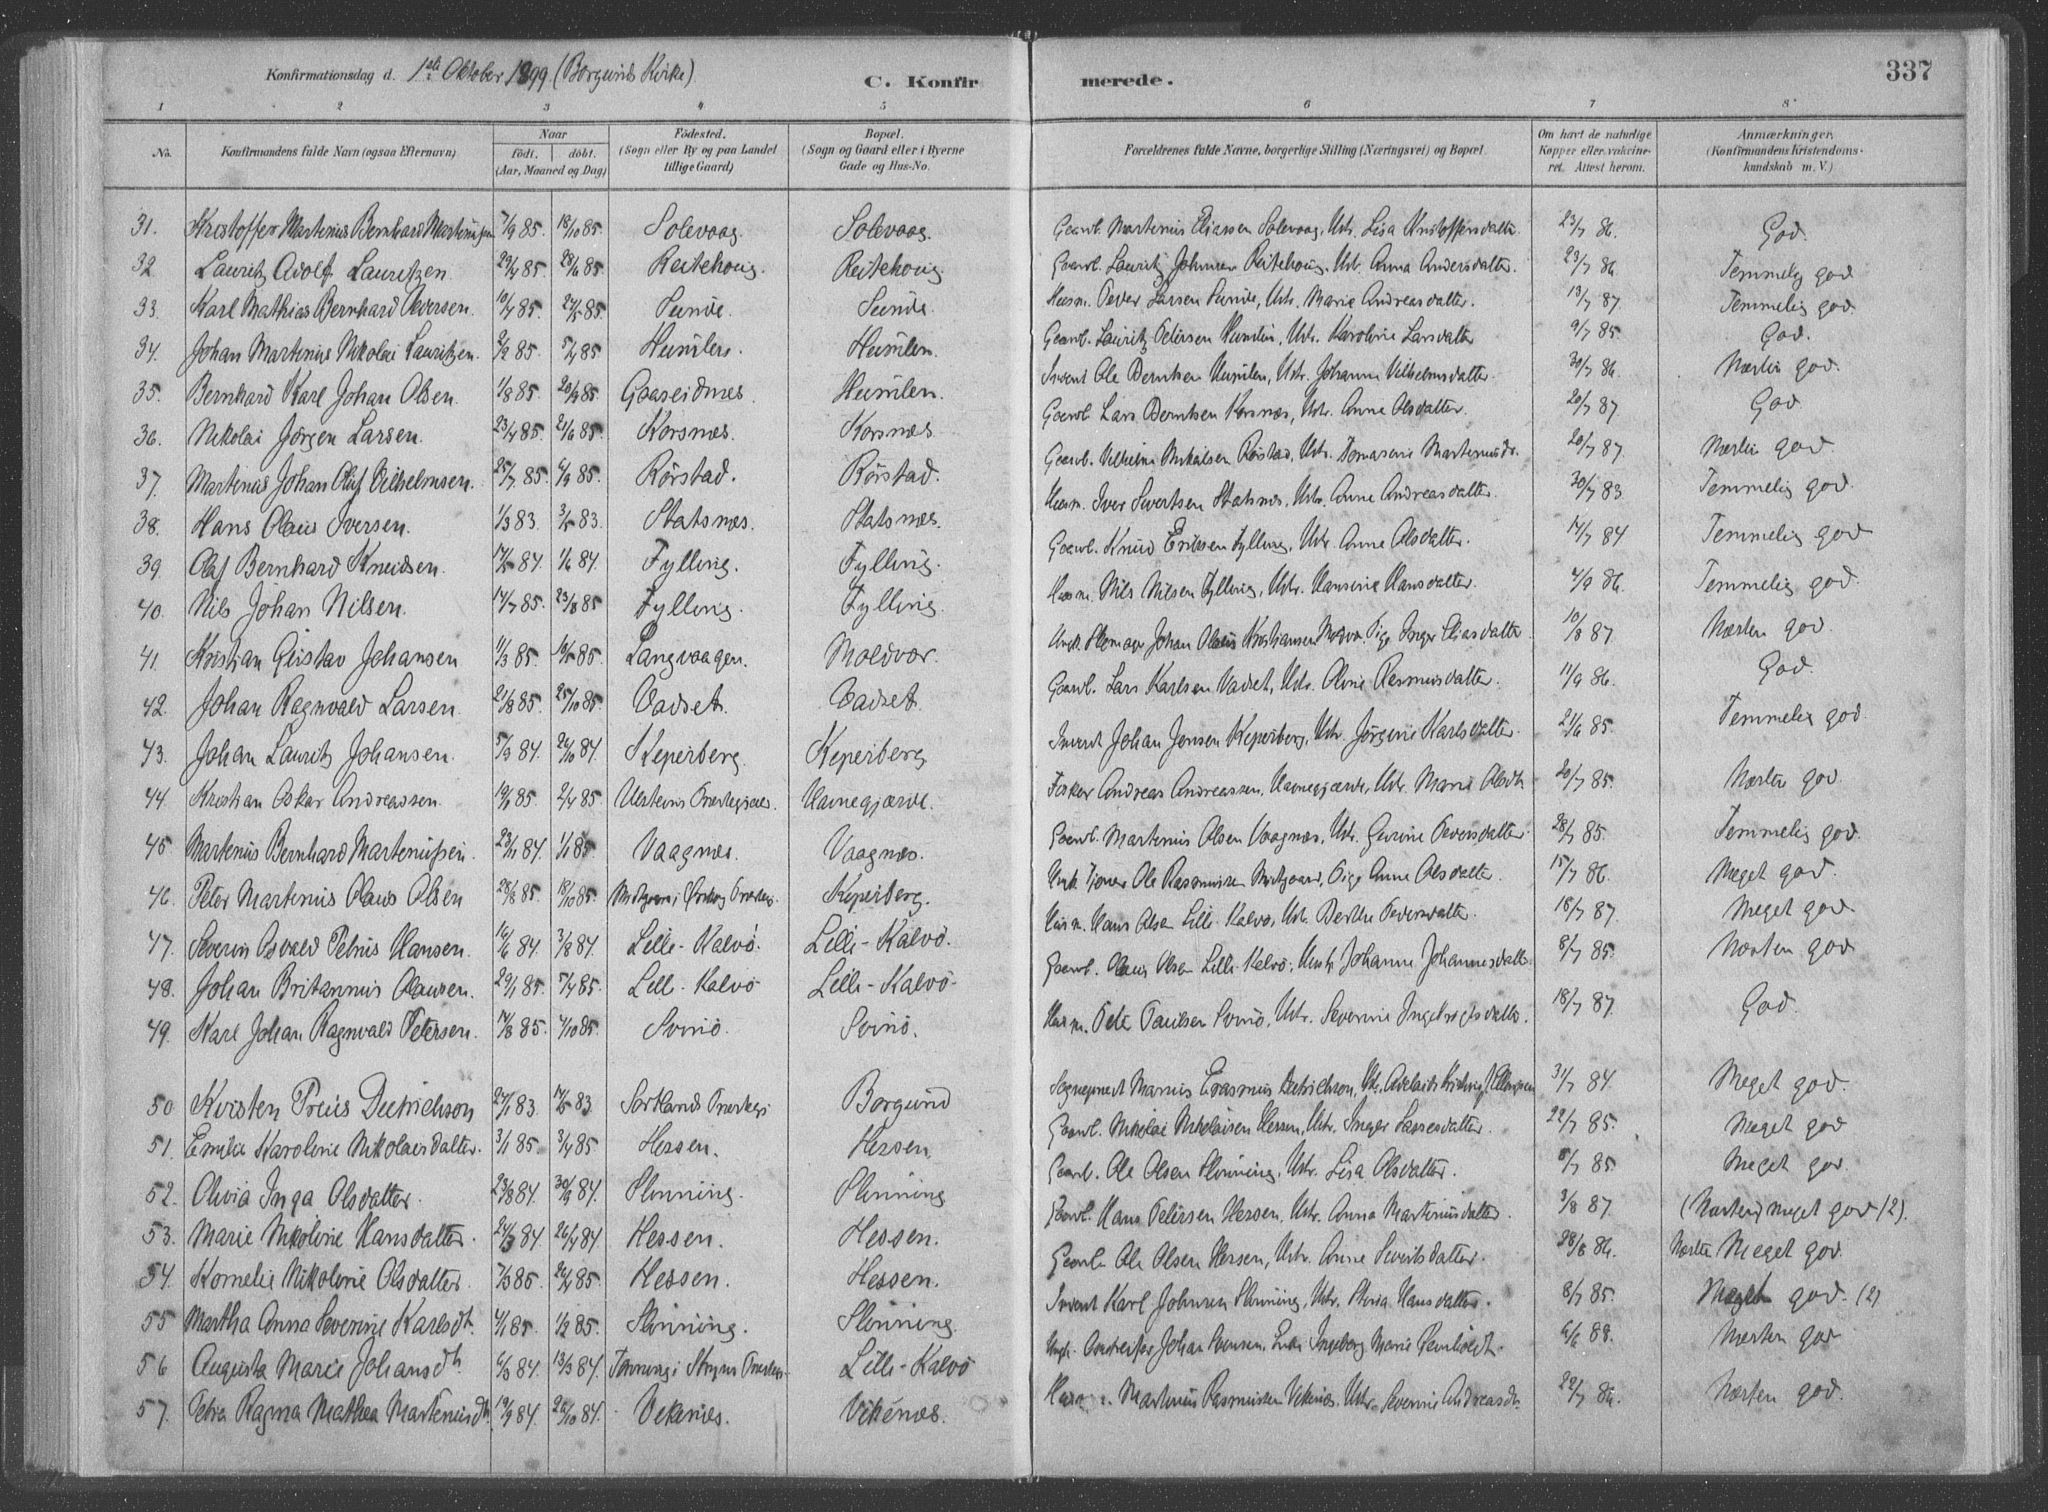 Konfirmationsdag d. 1ste Oktober 1899 (Borgunds Kirke)
C. Konfirmerede.
337
1 2 3 4 5 6 7 8
No. | Konfirmandens fulde Navn (ogsaa Efternavn) | Naar födt. döbt. (Aar, Maaned og Dag) | Födested. (Sogn eller By og paa Landet tillige Gaard) | Bopæl. (Sogn og Gaard eller i Byerne Gade og Hus-No. | Forældrenes fulde Navne, borgerlige Stilling (Næringsvei) og Bopæl. | Om havt de naturlige Kopper eller vakcineret. Attest herom. | Anmærkninger. (Konfirmandens Kristendomskundskab m. V.)
31. Kristoffer Martinus Bernhard Martinussen 7/9 85. 18/10 85. Solevaag. Solevaag. Gaarb. Martinus Eliassen Solevaag, Ustr. Lisa Kristoffersdatter 23/7 86. God.
32 Lauritz Adolf Lauritzen 29/4 85. 28/6 85. Reitehoug. Reitehoug. Gaarb. Lauritz Johnsen Reitehoug, Ustr. Anna Andersdatter. 23/7 86 Temmelig god
33. Karl Mathias Bernhard Peversen. 10/4 85. 27/5 85. Sunde. Sunde. Husm. Pever Larsen Sunde, Ustr. Marie Andreasdatter. 13/7 87 Temmelig god.
34. Johan Martinus Nikolai Lauritzen. 2/2 85. 5/4 85 Humlen. Humlen. Gaarb. Lauritz Petersen Humlen, Ustr. Karoline Larsdatter 9/7 85. God.
35. Bernhard Karl Johan Olsen. 1/8 85. 20/9 85. Gaaseidnes. Humlen. Inderst Ole Berntsen Humlen, Ustr. Johanne Vilhelmsdatter. 30/7 86. Næsten god.
36. Nikolai Jörgen Larsen. 23/4 85. 21/6 85. Korsnæs. Korsnæs Gaarb. Lars Berntsen Korsnæs, Ustr. Anne Olsdatter. 20/7 87 God
37. Martinus Johan Oluf Vilhelmsen. 25/7 85. 6/9 85. Rörstad. Rörstad. Gaarb. Vilhelm Mikalsen Rörstad, Ustr. Tomasine Martinusdr. 20/7 87. Næsten god.
38. Hans Olaus Iversen. 1/3 83. 3/5 83. Statsnæs. Statsnæs. Husm. Iver Sivertsen Statsnæs, Ustr. Anne Andreasdatter. 20/7 83 Temmelig god.
39. Olaf Bernhard Knudsen. 17/5 84. 1/6 84. Fylling. Fylling. Gaarb. Knud Eriksen Fylling, Ustr. Anne Olsdatter. 14/7 84 Temmelig god
40. Nils Johan Nilsen. 14/7 85. 23/8 85 Fylling. Fylling. Husm. Nils Nilsen Fylling, Ustr. Hansine Hansdatter. 4/9 86. Temmelig god.
41. Kristian Gustav Johansen 11/3 85. 10/5 85. Langvaagen. Moldvær. Ungk. Johan Olaus Kristiansen Moldvær Pige Inger Eliasdatter 10/8 87. Næsten god.
42. Johan Ragnvald Larsen. 21/8 85. 25/10 85. Vadset. Vadset. Gaarb. Lars Karlsen Vadset, Ustr. Oline Rasmusdatter. 11/9 86. God.
43. Johan Lauritz Johansen. 5/9 84. 26/10 84. Keperberg. Keperberg Inderst Johan Jensen Keperberg, Ustr. Jörgine Karlsdatter. 21/6 85. Temmelig god
44. Kristian Oskar Andreassen. 2/4 85 Havnegjærde. Fisker Andreas Andreassen, Havnegjærde, Ustr. Marie Olsdtr 20/7 85. Næsten god
45 Martinus Bernhard Martinussen. 23/11 84. 1/1 85. Vaagnæs. Vaagnæs. Gaarb. Martinus Olsen Vaagnæs, Ustr. Gurine Peversdatter. 28/7 85. Temmelig god.
46. Peter Martinus Olaus Olsen 28/8 85. 18/10 85. Keperberg. Ungk. Ole Rasmussen Midtgaard, Pige Anne Olsdatter. 15/7 86. Meget god.
47. Severin Osvald Petrus Hansen. 14/6 84. 3/8 84. Lille-Kalvö. Lille-Kalvö. Husm. Hans Olsen Lille-Kalvö, Ustr. Berthe Peversdatter. 18/7 87. Meget god
48. Johan Britannius Olausen. 29/1 85. 5/4 85. Lille-Kalvö Lille-Kalvö. Gaarb. Olaus Olsen Lille Kalvö, Ustr. Johanne Johannesdatter 8/7 85. Næsten god
49. Karl Johan Ragnvald Petersen. 14/8 85. 4/10 85. Svinö. Svinö. Husm. Peter Paulsen Svinö, Ustr. Severine Ingebrigtsdatter. 18/7 87. God.
50 Kirsten Preus Dietrichson 27/1 83. 14/5 83 Borgund Sogneprest Marius Erasmus Dietrichson, 31/7 84. Meget god.
51. Emilie Karoline Nikolaisdatter. 3/1 85. 3/4 85 Hessen. Hessen. Gaarb. Nikolai Nikolaisen Hessen, Ustr. Inger Lassesdatter. 22/7 85. Meget god
52. Olivia Inga Olsdatter. 23/8 84. 30/9 84. Slinning. Slinning Gaarb. Ole Olsen Slinning, Ustr. Lisa Olsdatter. 8/7 85. Meget god.
53. Marie Nikoline Hansdatter. 24/3 84 26/4 84 Hessen. Hessen. Gaarb. Hans Petersen Hessen, Ustr. Anna Martinusdatter. 3/8 87. (Næsten) meget god (2).
54. Kornelie Nikoline Olsdatter. 7/3 85. 26/4 85. Hessen. Hessen. Gaarb. Ole Olsen Hessen, Ustr. Anne Sivertsdatter. 28/8 86. Næsten Meget god.
55 Martha Anna Severine Karlsdt. 4/1 85. 1/2 85. Slinning. Slinning. Inderst Karl Johnsen Slinning, Ustr. Hansdatter. 8/7 85. Meget god. (2)
56 Augusta Marie Johansdtr 6/3 84. 13/3 84. Lille-Kalvö Johan Ingeborg Marie 6/6 88. Næsten god
57. Petra Ragna Mathea Martinusdtr. 19/9 84. 26/10 84. Vikenæs. Vikenæs. Martinus Rasmussen Vikenæs, Ustr. Severine Andreasdtr. 22/7 86. Næsten god.